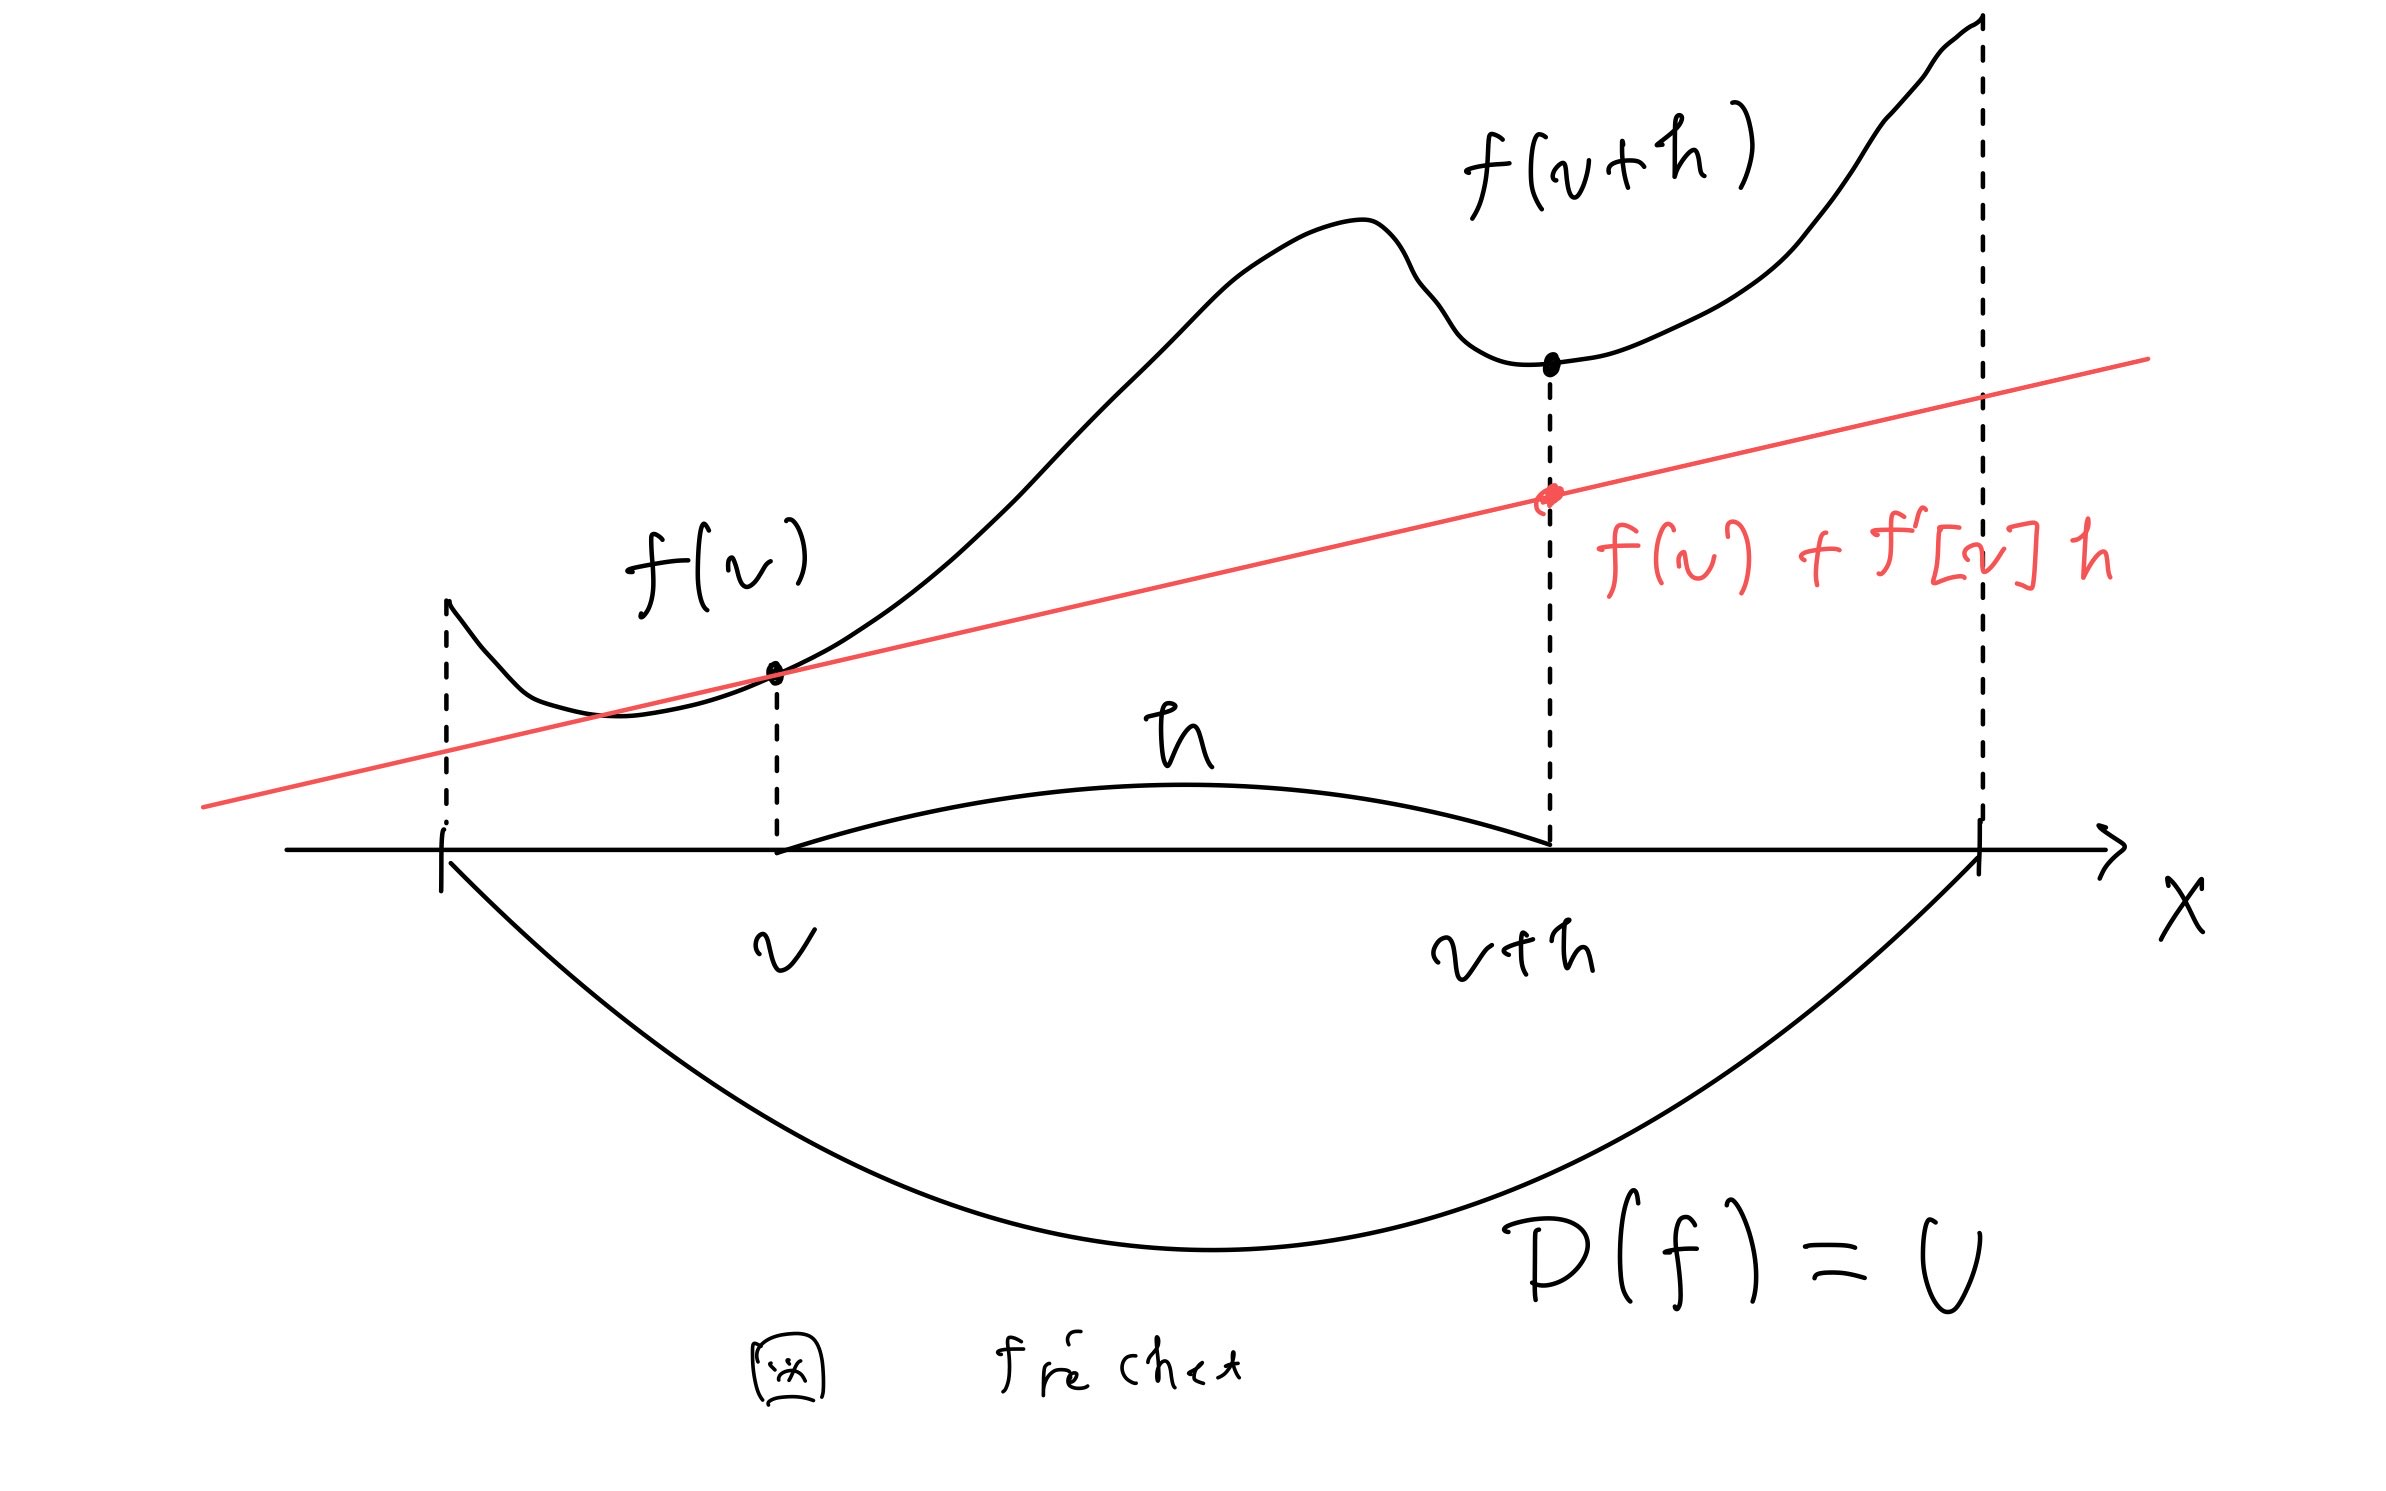 f(v+h)
f(v)
f(v) + f'[v] h
h
v
v+h
X
D(f) = U
図 fréchet